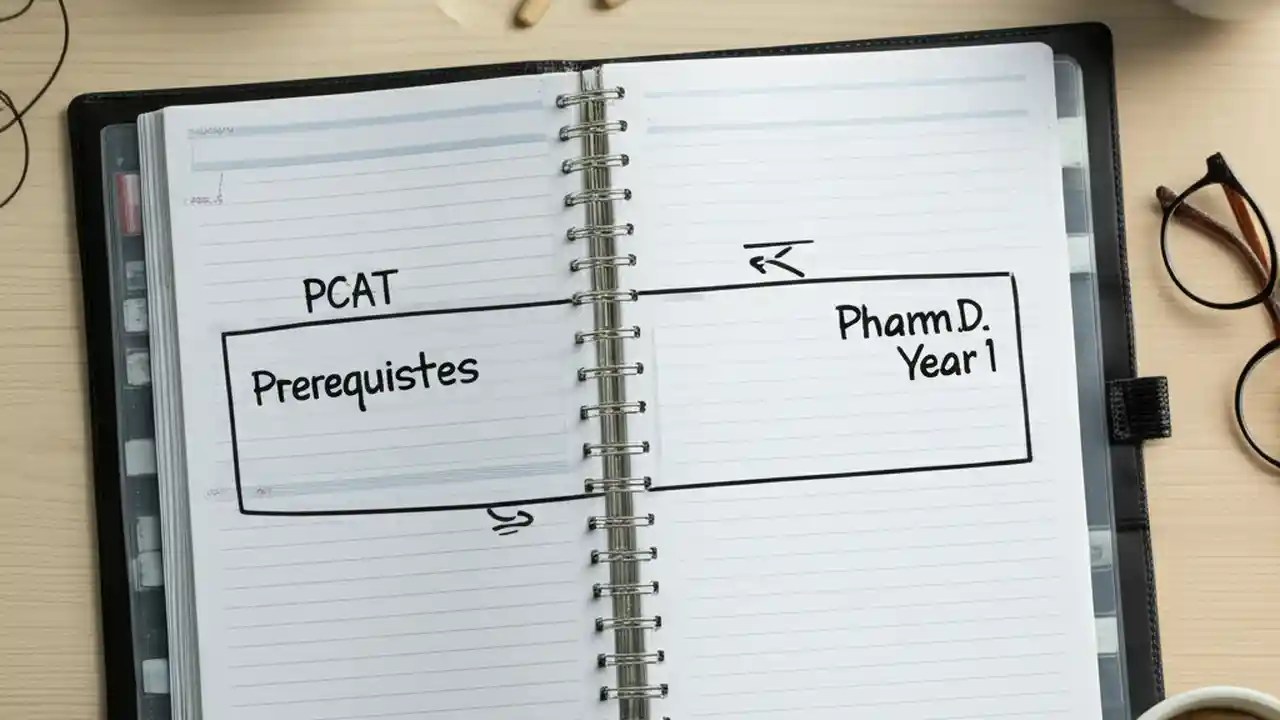 PCAT
Prerequistes
Pharm.D.
Year 1